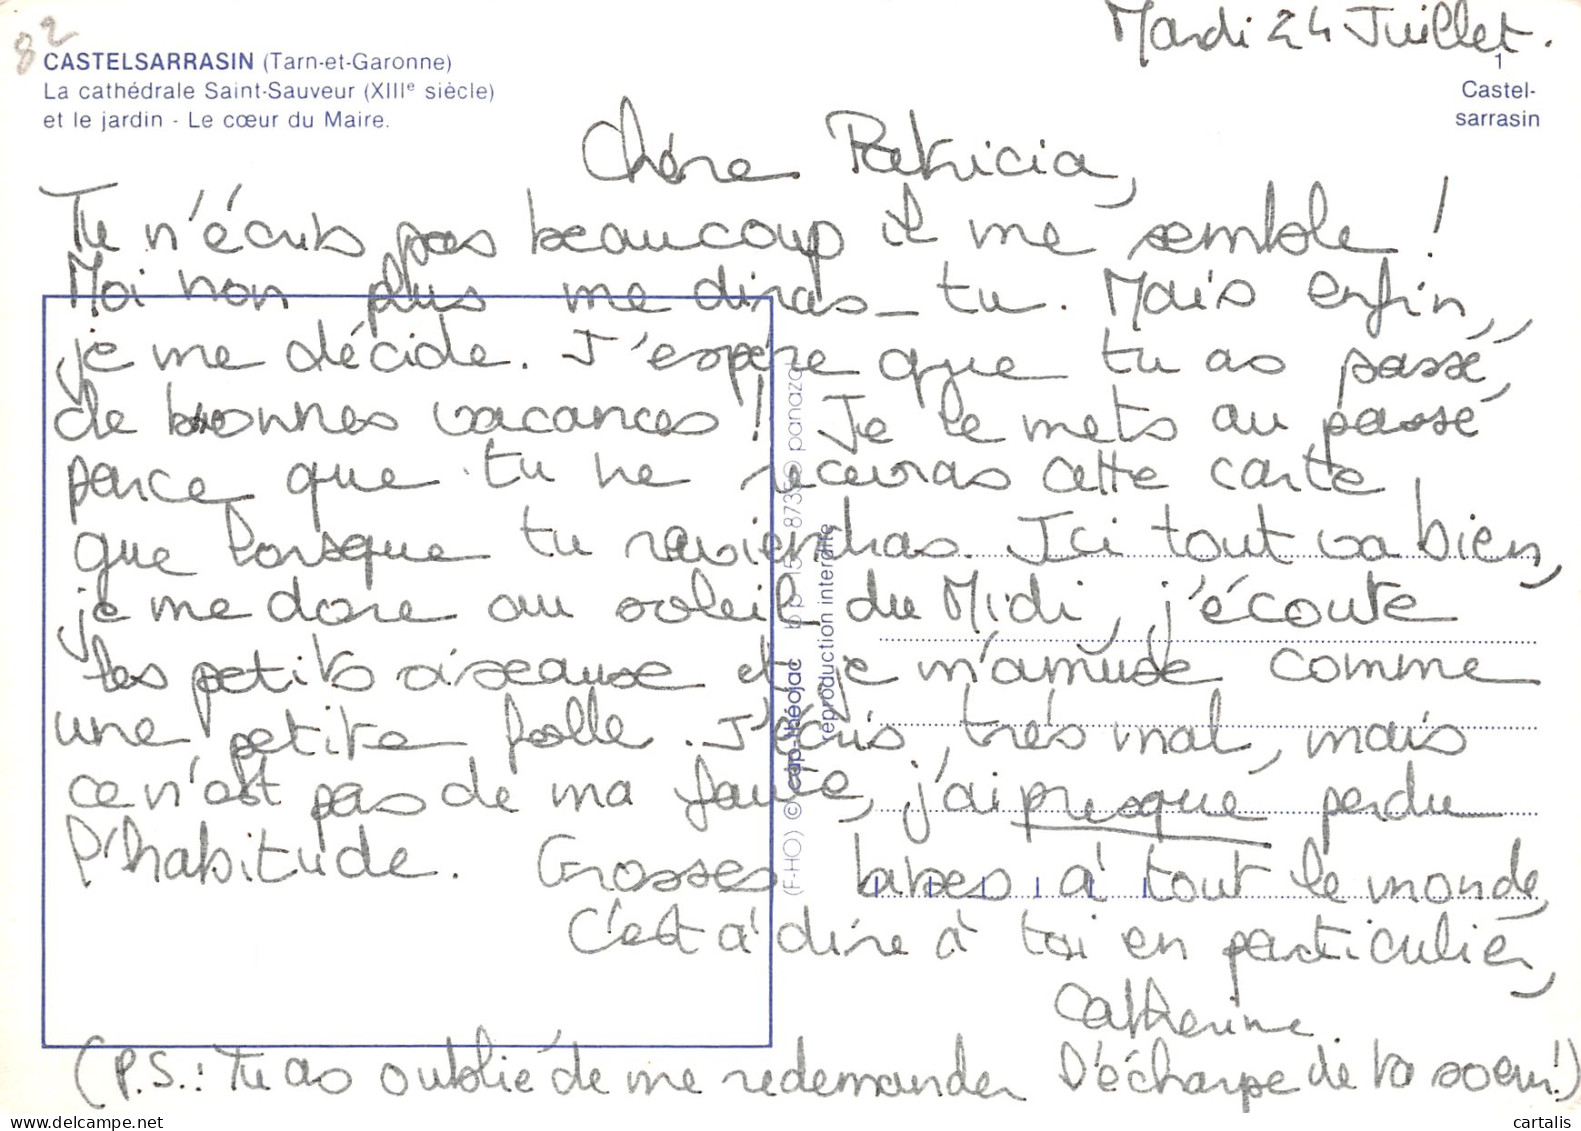 82
Mardi 24 Juillet.
CASTELSARRASIN (Tarn-et-Garonne)
La cathédrale Saint-Sauveur (XIIIe siècle)
et le jardin - Le cœur du Maire.
1
Castel-
sarrasin
Chère Patricia,
Tu n'écris pas beaucoup il me semble !
Moi non plus me diras-tu. Mais enfin,
je me décide. J'espère que tu as passé,
de bonnes vacances ! Je le mets au passé
parce que tu ne recevras cette carte
que lorsque tu reviendras. Ici tout va bien,
je me dore au soleil du Midi, j'écoute
les petits oiseaux et je m'amuse comme
une petite folle. J'écris très mal, mais
ce n'est pas de ma faute, j'ai presque perdu
l'habitude. Grosses bises à tout le monde,
C'est à dire à toi en particulier,
Catherine
(P.S.: Tu as oublié de me redemander l'écharpe de ta sœur!)
(F-HO) © cap-théojac bp 15 8735 panazol
reproduction interdite
cartalis